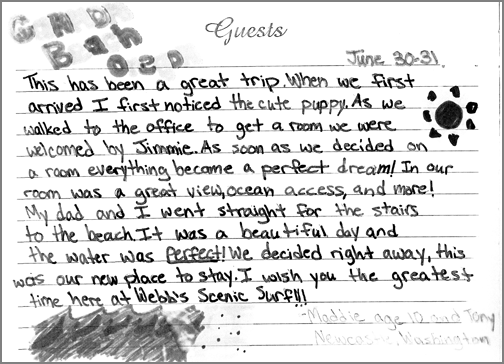 Guests
June 30-31
This has been a great trip. When we first
arrived I first noticed the cute puppy. As we
walked to the office to get a room we were
welcomed by Jimmie. As soon as we decided on
a room everything became a perfect dream! In our
room was a great view, ocean access, and more!
My dad and I went straight for the stairs
to the beach. It was a beautiful day and
the water was perfect! We decided right away, this
was our new place to stay. I wish you the greatest
time here at Webb's Scenic Surf!!!
-Maddie age 10 and Tony
Newcastle, Washington